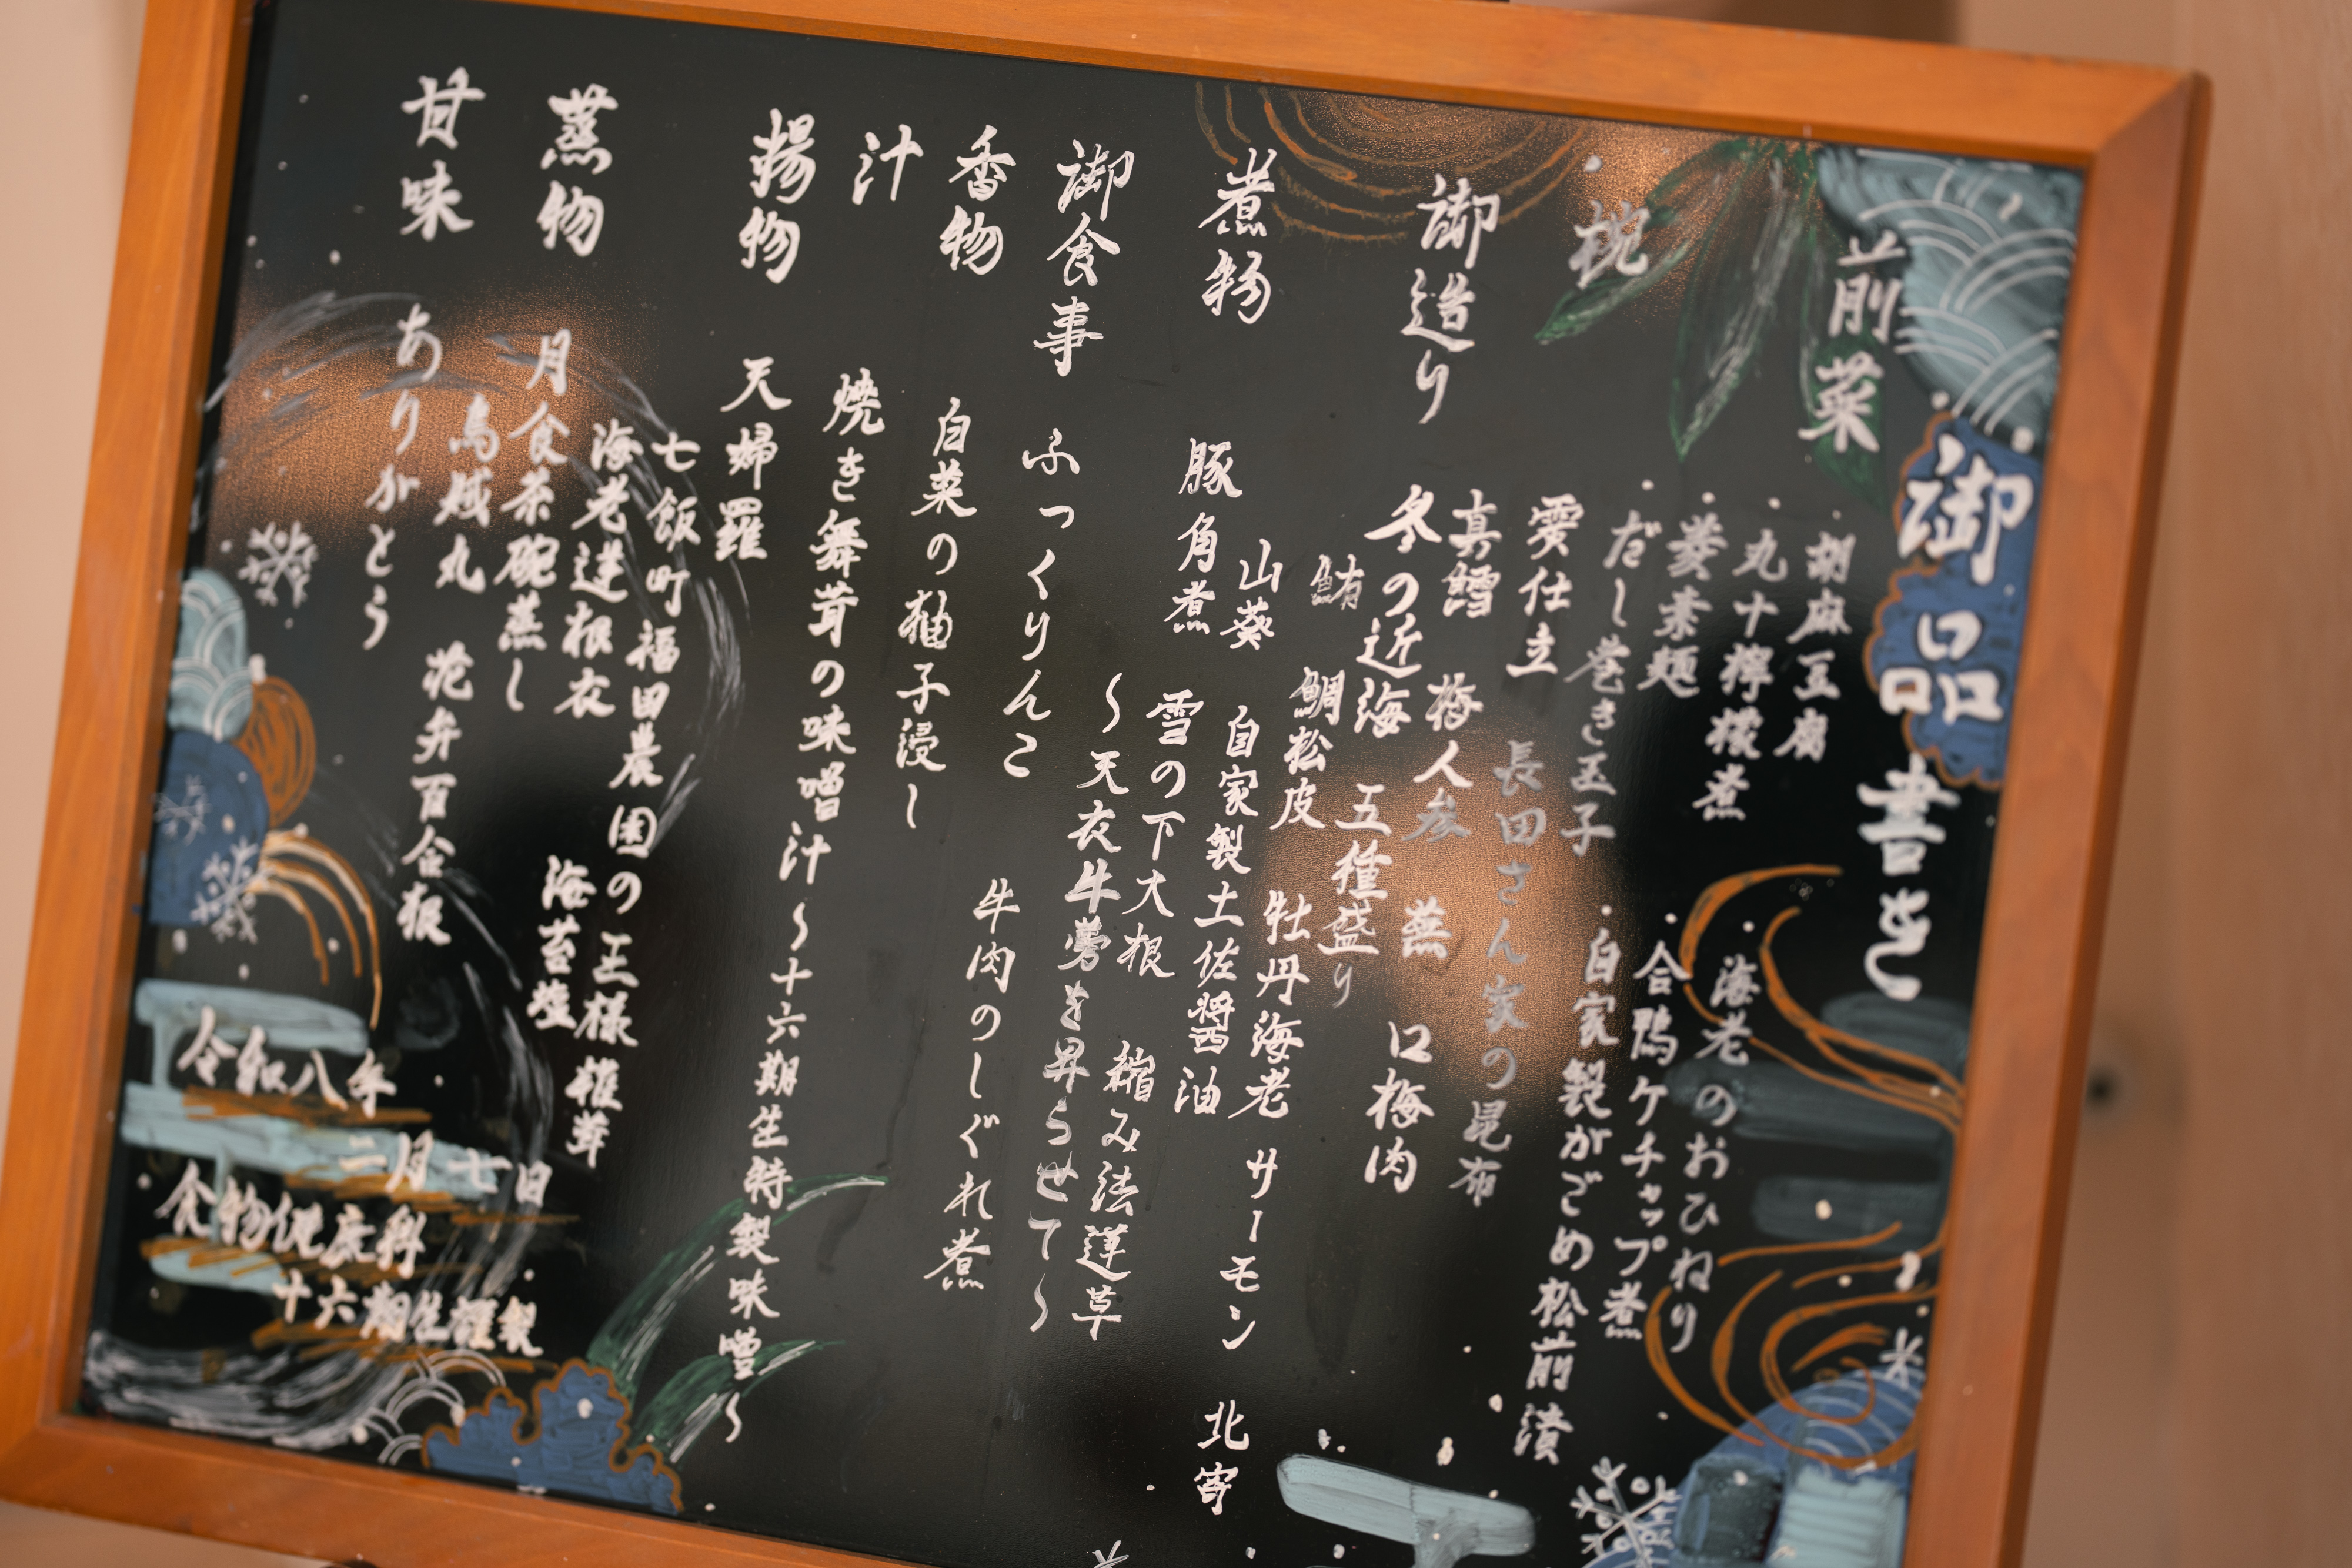 御品書き
前菜
・胡麻豆腐
・丸十檸檬煮
・海老のおひねり
・蕎素麺
・合鴨ケチャップ煮
・だし巻き玉子
・自家製がごめ松前漬
・椀
雲仕立
長田さん家の昆布
真鱈 梅人参 蕪 口梅肉
御造り
冬の近海 五種盛り
鮪 鯛松皮 牡丹海老 サーモン 北寄
山葵 自家製土佐醤油
煮物
豚角煮
雪の下大根 縮み法蓮草
〜天衣牛蒡を昇らせて〜
御食事
ふっくりんこ 牛肉のしぐれ煮
香物
白菜の柚子浸し
汁
焼き舞茸の味噌汁〜十六期生特製味噌〜
揚物
天婦羅
七飯町福田農園の王様椎茸
海老蓮根衣 海苔塩
蒸物
月食茶碗蒸し
烏賊丸 花弁百合根
甘味
ありがとう
令和八年
二月七日
食物健康科
十六期生謹製